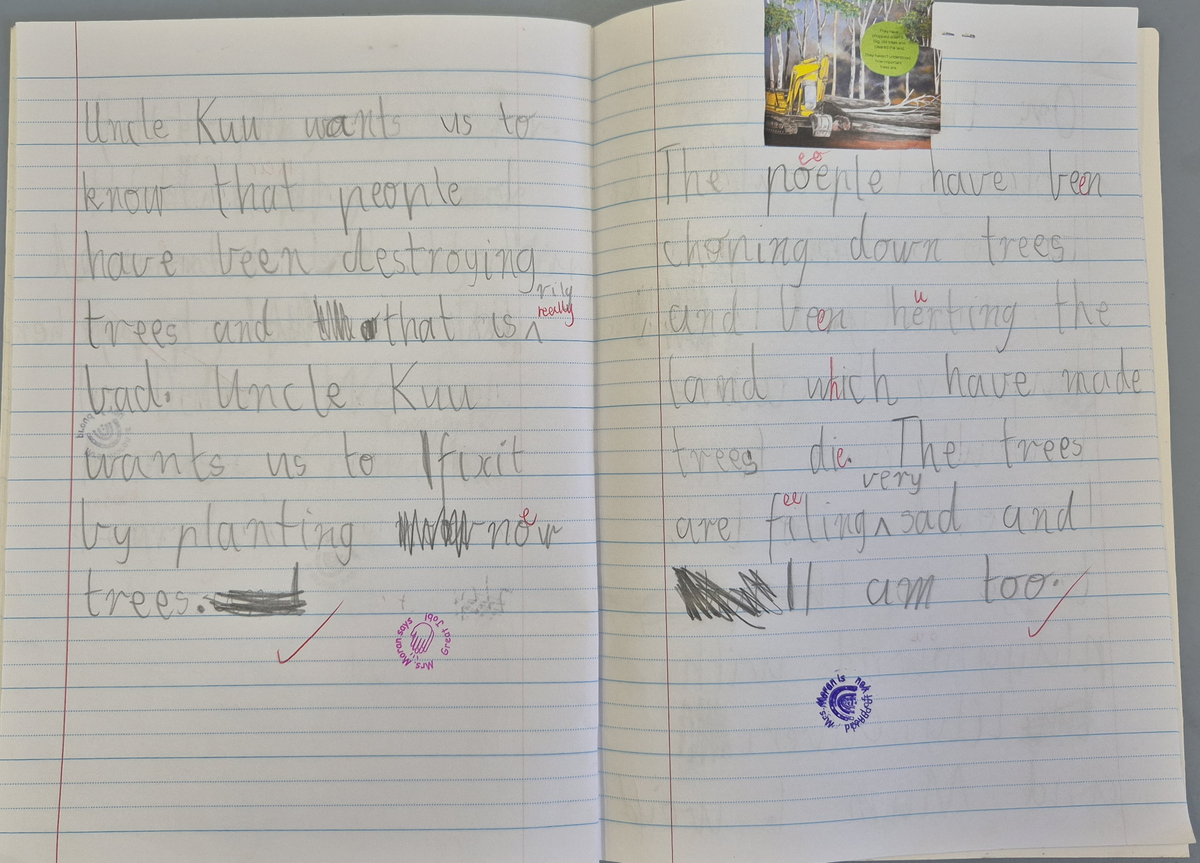 Uncle Kuu wants us to
know that people
have been destroying
rily
really
trees and that is ^
bad. Uncle Kuu
wants us to fixit
by planting now
e
trees.
Mrs. Moran says Great Job!
The poeple have been
eo
choping down trees
u
and been herting the
land which have made
trees die. The trees
very
ee
are filing ^ sad and
I am too.
Mrs. Moran is